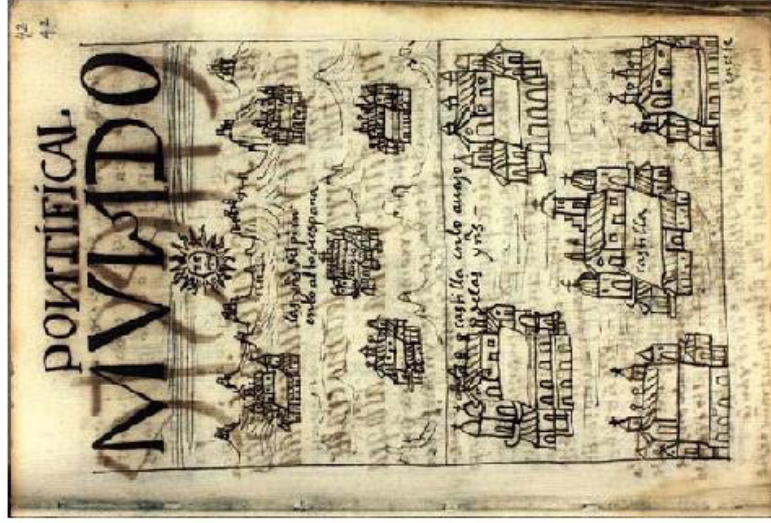 42
42
PONTIFICAL
MVNDO
las yns del piru
enlo alto despaña
castilla enlo auajo
delas yns
castilla